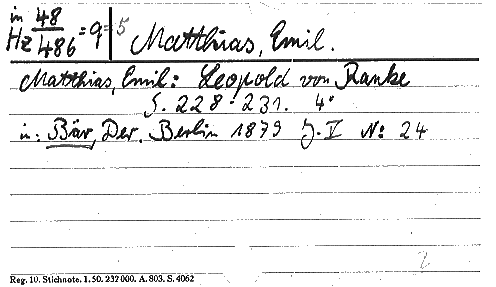 in Hz 48/486 = 9 = 5 Matthias, Emil.
Matthias, Emil: Leopold von Ranke
S. 228-231. 4°
in: Bär, Der. Berlin 1879 J. V N: 24
2
Reg. 10. Stichnote. 1. 50. 232000. A. 803. S. 4062